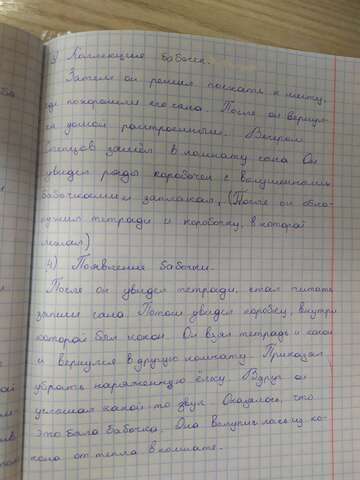 3) Коллекция бабочек.
Затем он решил поехать к месту,
где похоронили его сына. После он вернул-
ся домой расстроенным. Вечером
Слепцов зашёл в комнату сына. Он
увидел ряды коробочек с высушенными
бабочками и заплакал. (После он обна-
ружил тетради и коробочку, в которой
4) Появление бабочки.
После он увидел тетради, стал читать
записи сына. Потом увидел коробку, внутри
которой был кокон. Он взял тетрадь и кокон
и вернулся в другую комнату. Приказал
убрать наряженную ёлку. Вдруг он
услышал какой-то звук. Оказалось, что
это была бабочка. Она вылупилась из ко-
кона от тепла в комнате.